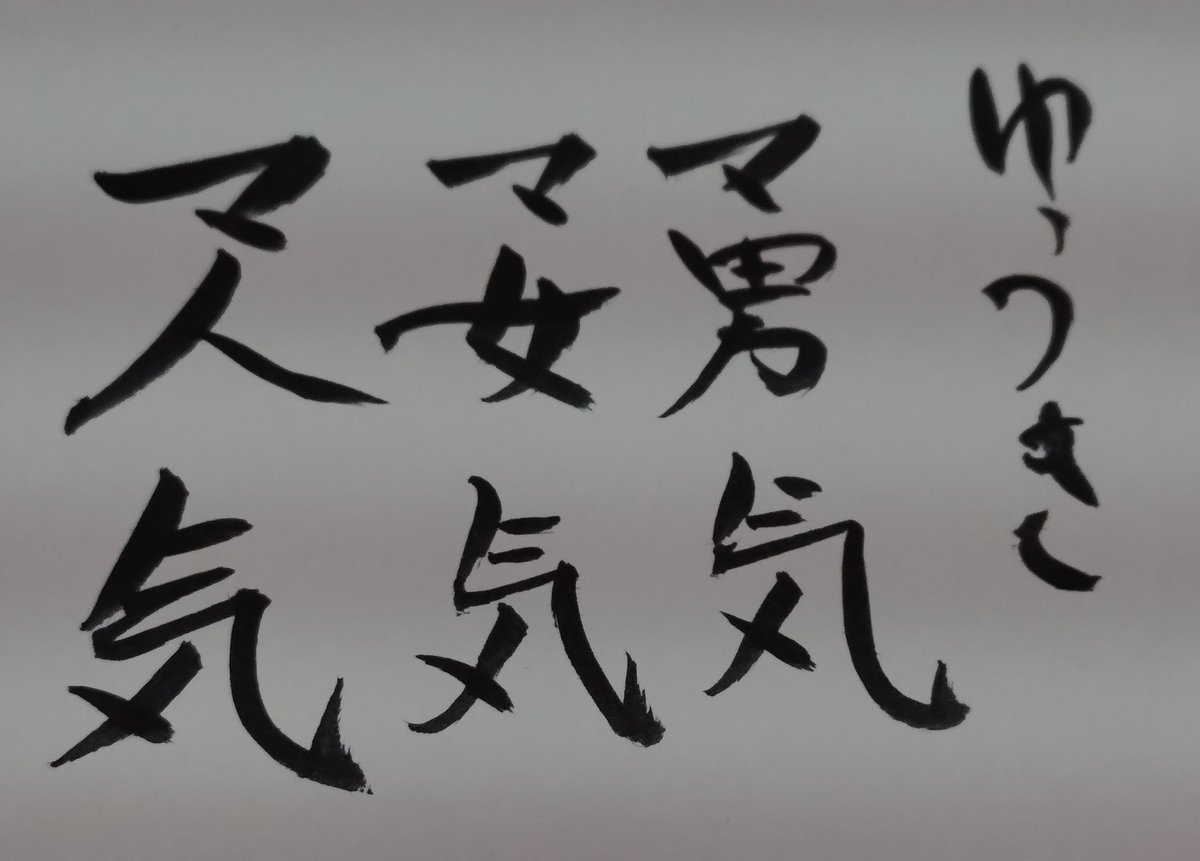 ゆうき
勇気
マ女気
マ人気